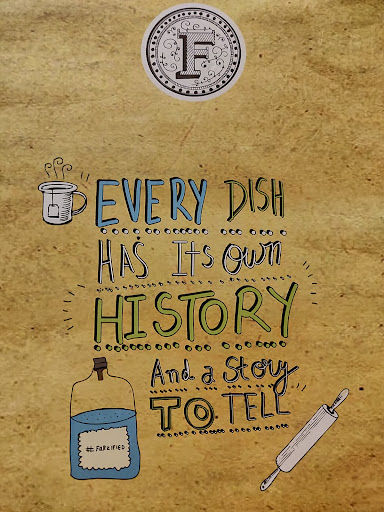 F
EVERY DISH
HAS ITS OWN
HISTORY
And a story
TO TELL
#FARZIFIED